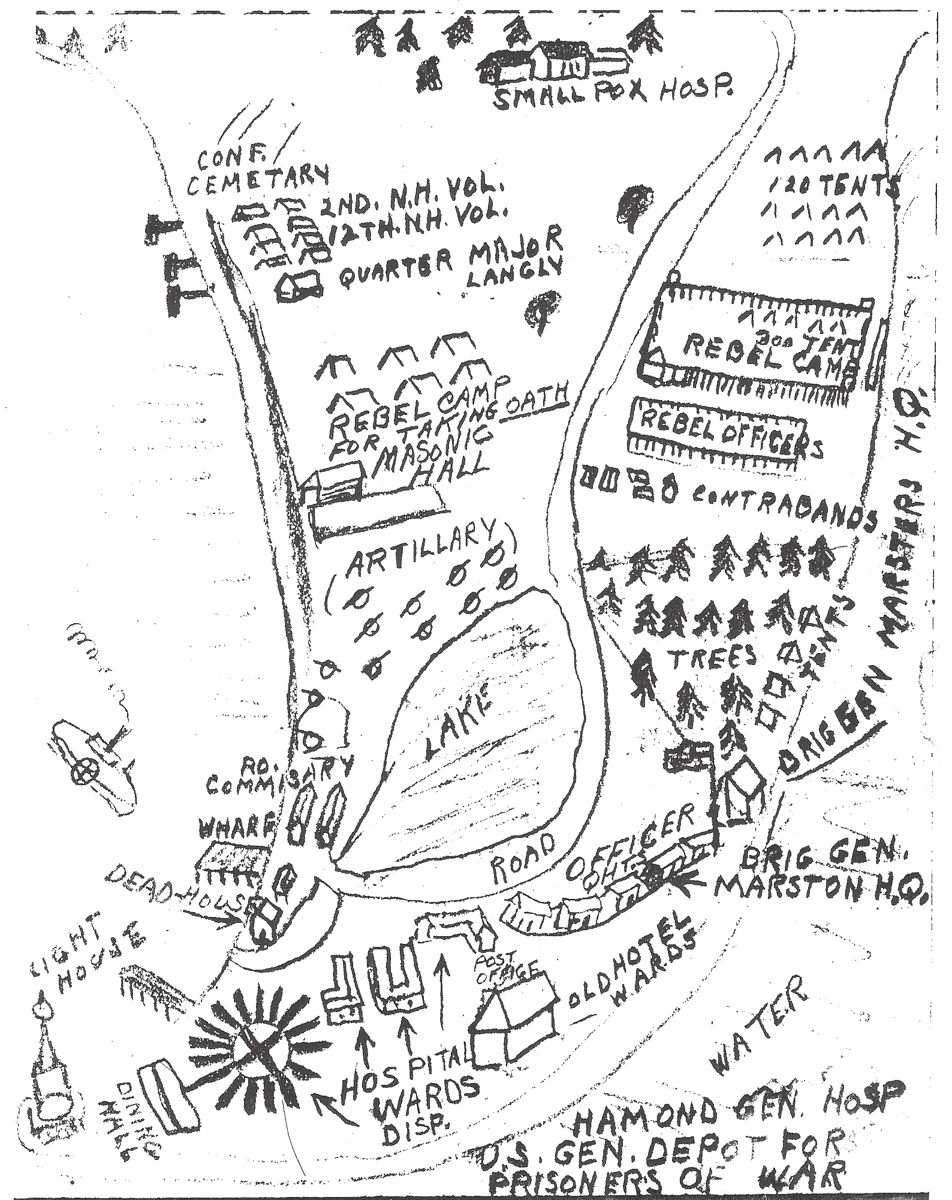 SMALL POX HOSP.
CONF.
CEMETARY
2ND. N.H. VOL.
12TH. N.H. VOL.
QUARTER MAJOR
LANGLY
120 TENTS
300 TENT
REBEL CAMP
REBEL OFFICERS
CONTRABANDS
REBEL CAMP
FOR TAKING OATH
MASONIC
HALL
(ARTILLARY)
TREES
TENTS
BRIG GEN MARSTERS H.Q.
LAKE
RD.
COMMISARY
WHARF
DEAD-HOUSE
ROAD
OFFICER
QHT'S
BRIG GEN.
MARSTON H.Q.
LIGHT
HOUSE
POST
OFFICE
OLD HOTEL
WARDS
WATER
HOSPITAL
WARDS
DISP.
DINING
HALL
HAMOND GEN. HOSP
U.S. GEN. DEPOT FOR
PRISONERS OF WAR